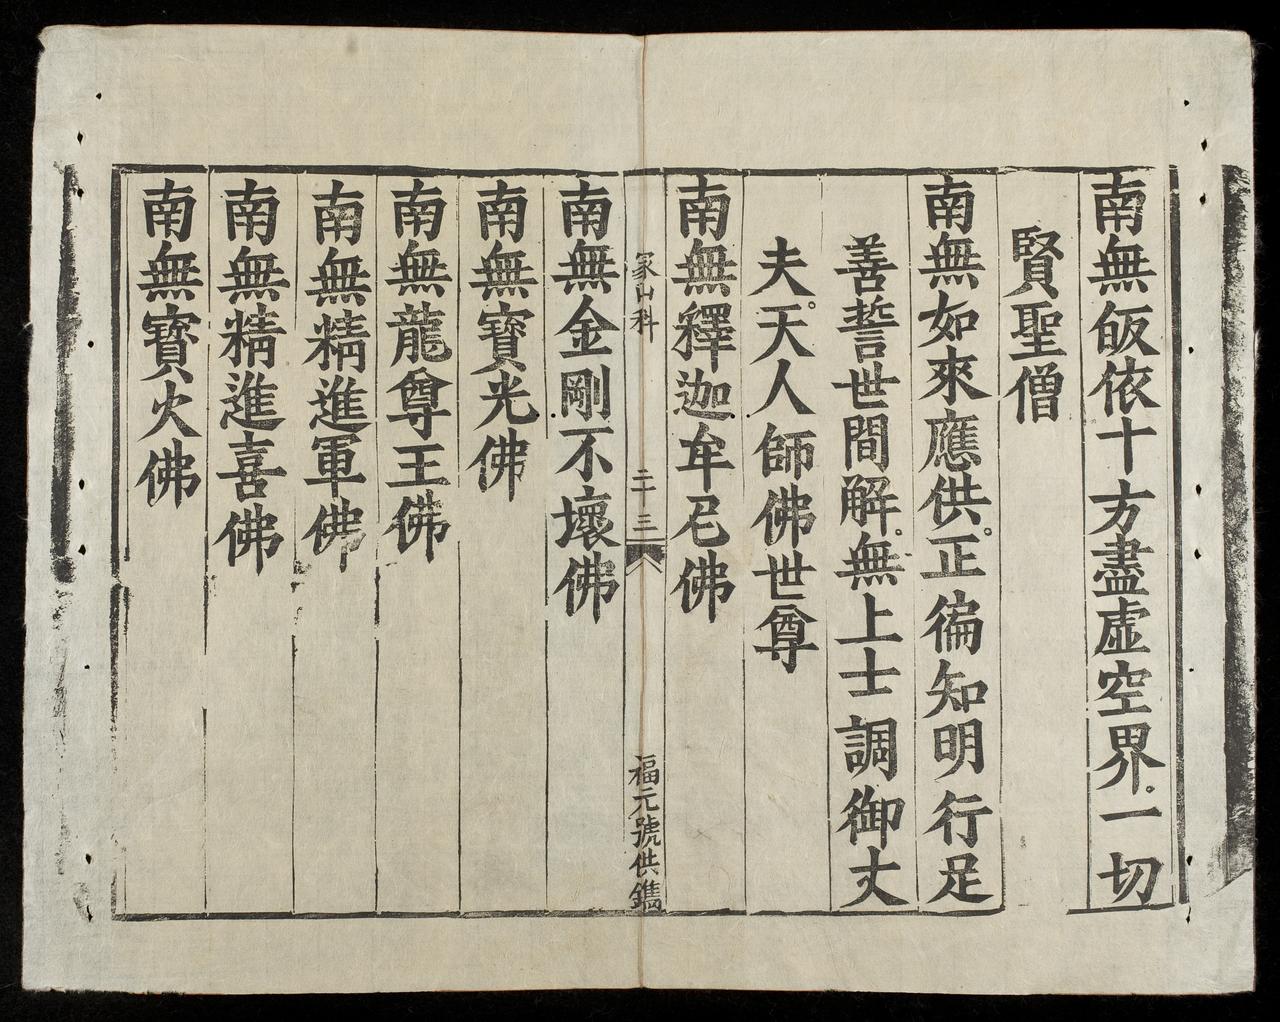 南無皈依十方盡虛空界一切
賢聖僧
南無如來應供正徧知明行足
善誓世間解無上士調御丈
夫天人師佛世尊
南無釋迦牟尼佛
蒙山科
二十三
福元號供鐫
南無金剛不壞佛
南無寶光佛
南無龍尊王佛
南無精進軍佛
南無精進喜佛
南無寶火佛